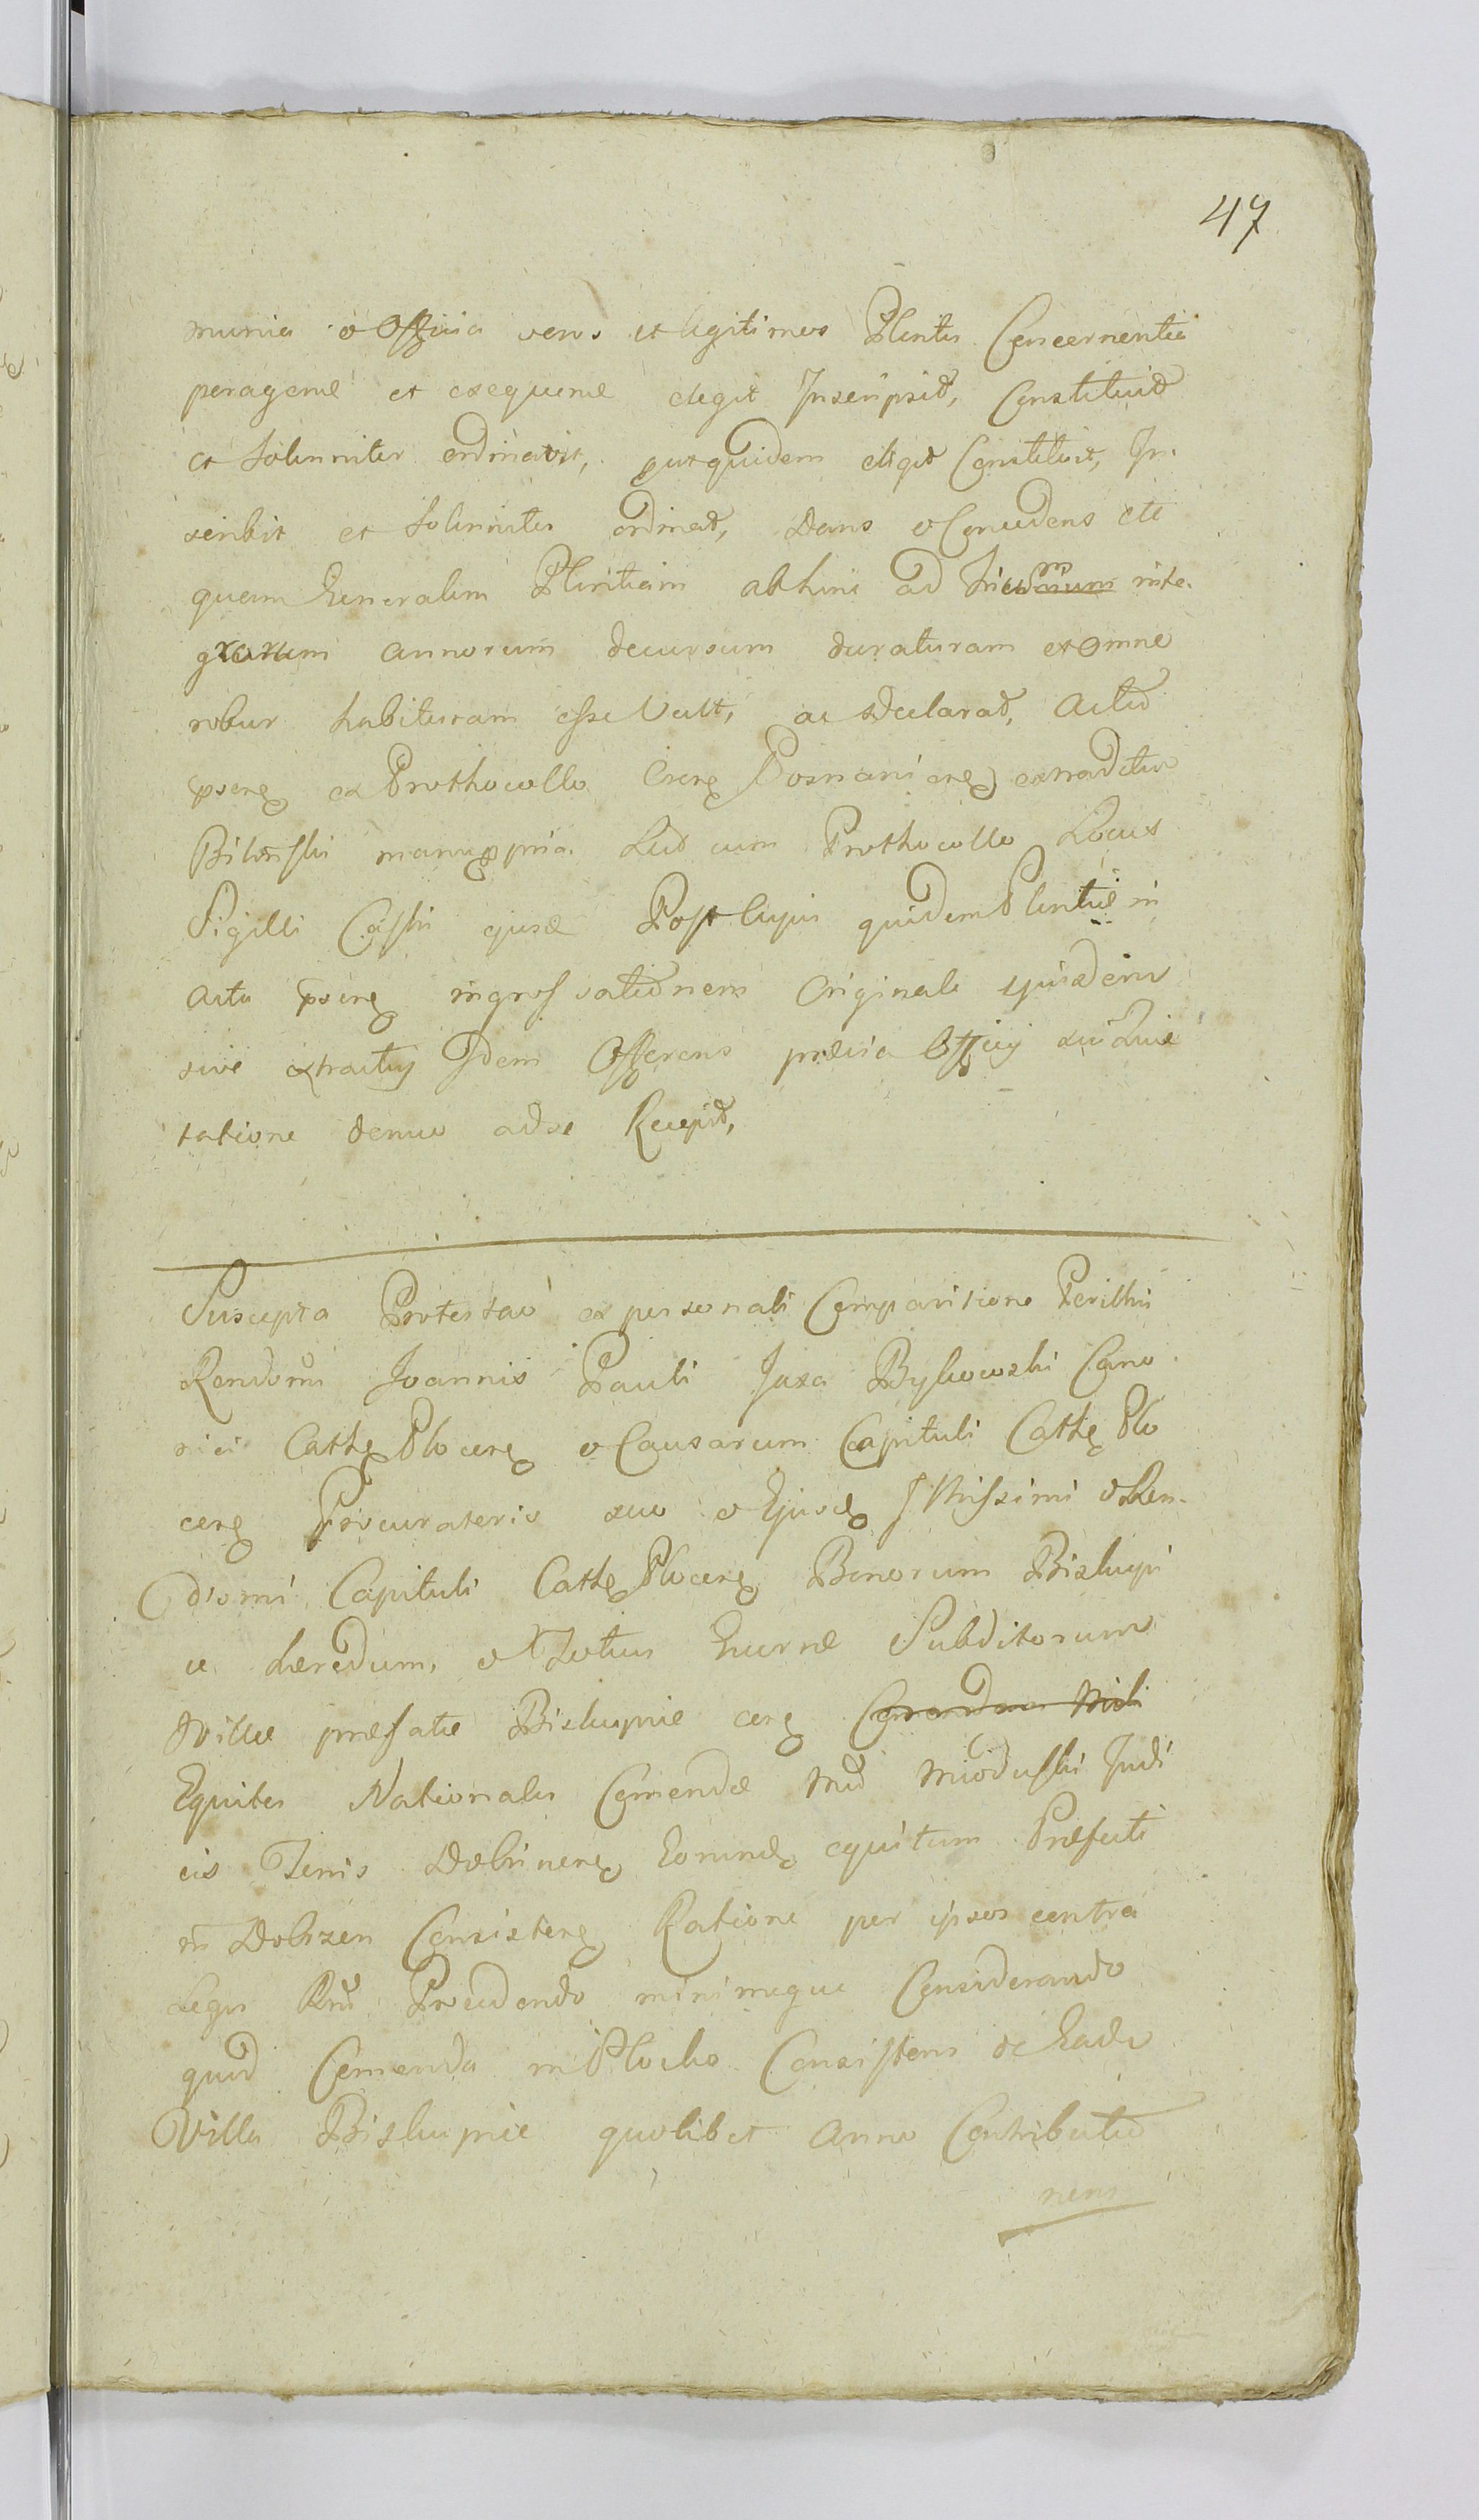 47
munia & Officia veros et legitimos Plentes Concernentia
peragene et exequene elegit Inscripsit, Constituit
et Solenniter ordinavit, putquidem eligit Constituit, In-
scribit et Solenniter ordinat, Dans & Concedens etc
quam Generalem Plentiam abhinc ad trium inte-
grorum annorum decursum duraturam et omne
robur habituram esse Vult, ac declarat, Actu
psens ex Prothocollo Cseng Posnanien extraditur
manu ppria Lect cum Prothocollo Locus
Sigilli Castri ejusd Post cujus quidem Plentiæ in
acta psene ingrossationem Originale ejusdem
sive extractus Idem Offerens prævia Officij sui Quie
tatione denuo ad se Recepit,
Suscepta Protestao ex personali Comparitione Perillris
Rendomi Joannis Pauli Jaxa Bykowski Cano
nici Cathe Plocene & Causarum Capituli Cathe Plo
cene Procuratoris suo & Ejusde Illrissimi & Ren-
domi Capituli Cathe Plocene Bonorum Biskupi
ce hæredum, & Totius Gurnæ Subditorum
Villæ præfatæ Biskupice cong
Equites Nationales Comendæ Mci Mioduski Judi
cis Terris Dobrinens Eorunde equitum Præfecti
in Dobrzen Consistens Ratione per ipsos contra
Leges Rni Procedendo minimeque Considerando
quod Comenda in Plocko Consistens de Eadem
Villa Biskupice quolibet Anno Contributio
nem